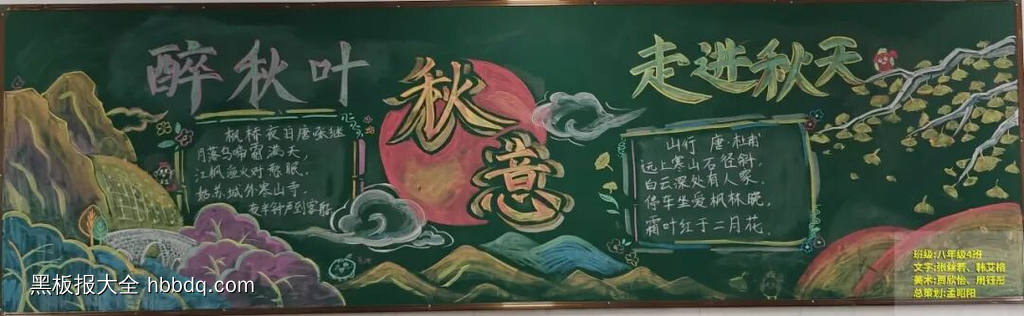 醉秋叶
枫桥夜泊唐张继
月落乌啼霜满天,
江枫渔火对愁眠.
姑苏城外寒山寺.
夜半钟声到客船.
秋意
走进秋天
山行 唐·杜甫
远上寒山石径斜,
白云深处有人家.
停车坐爱枫林晚,
霜叶红于二月花.
班级:八年级4班
文字:张
美术:
总策划:孟昭阳
黑板报大全 hbbdq.com